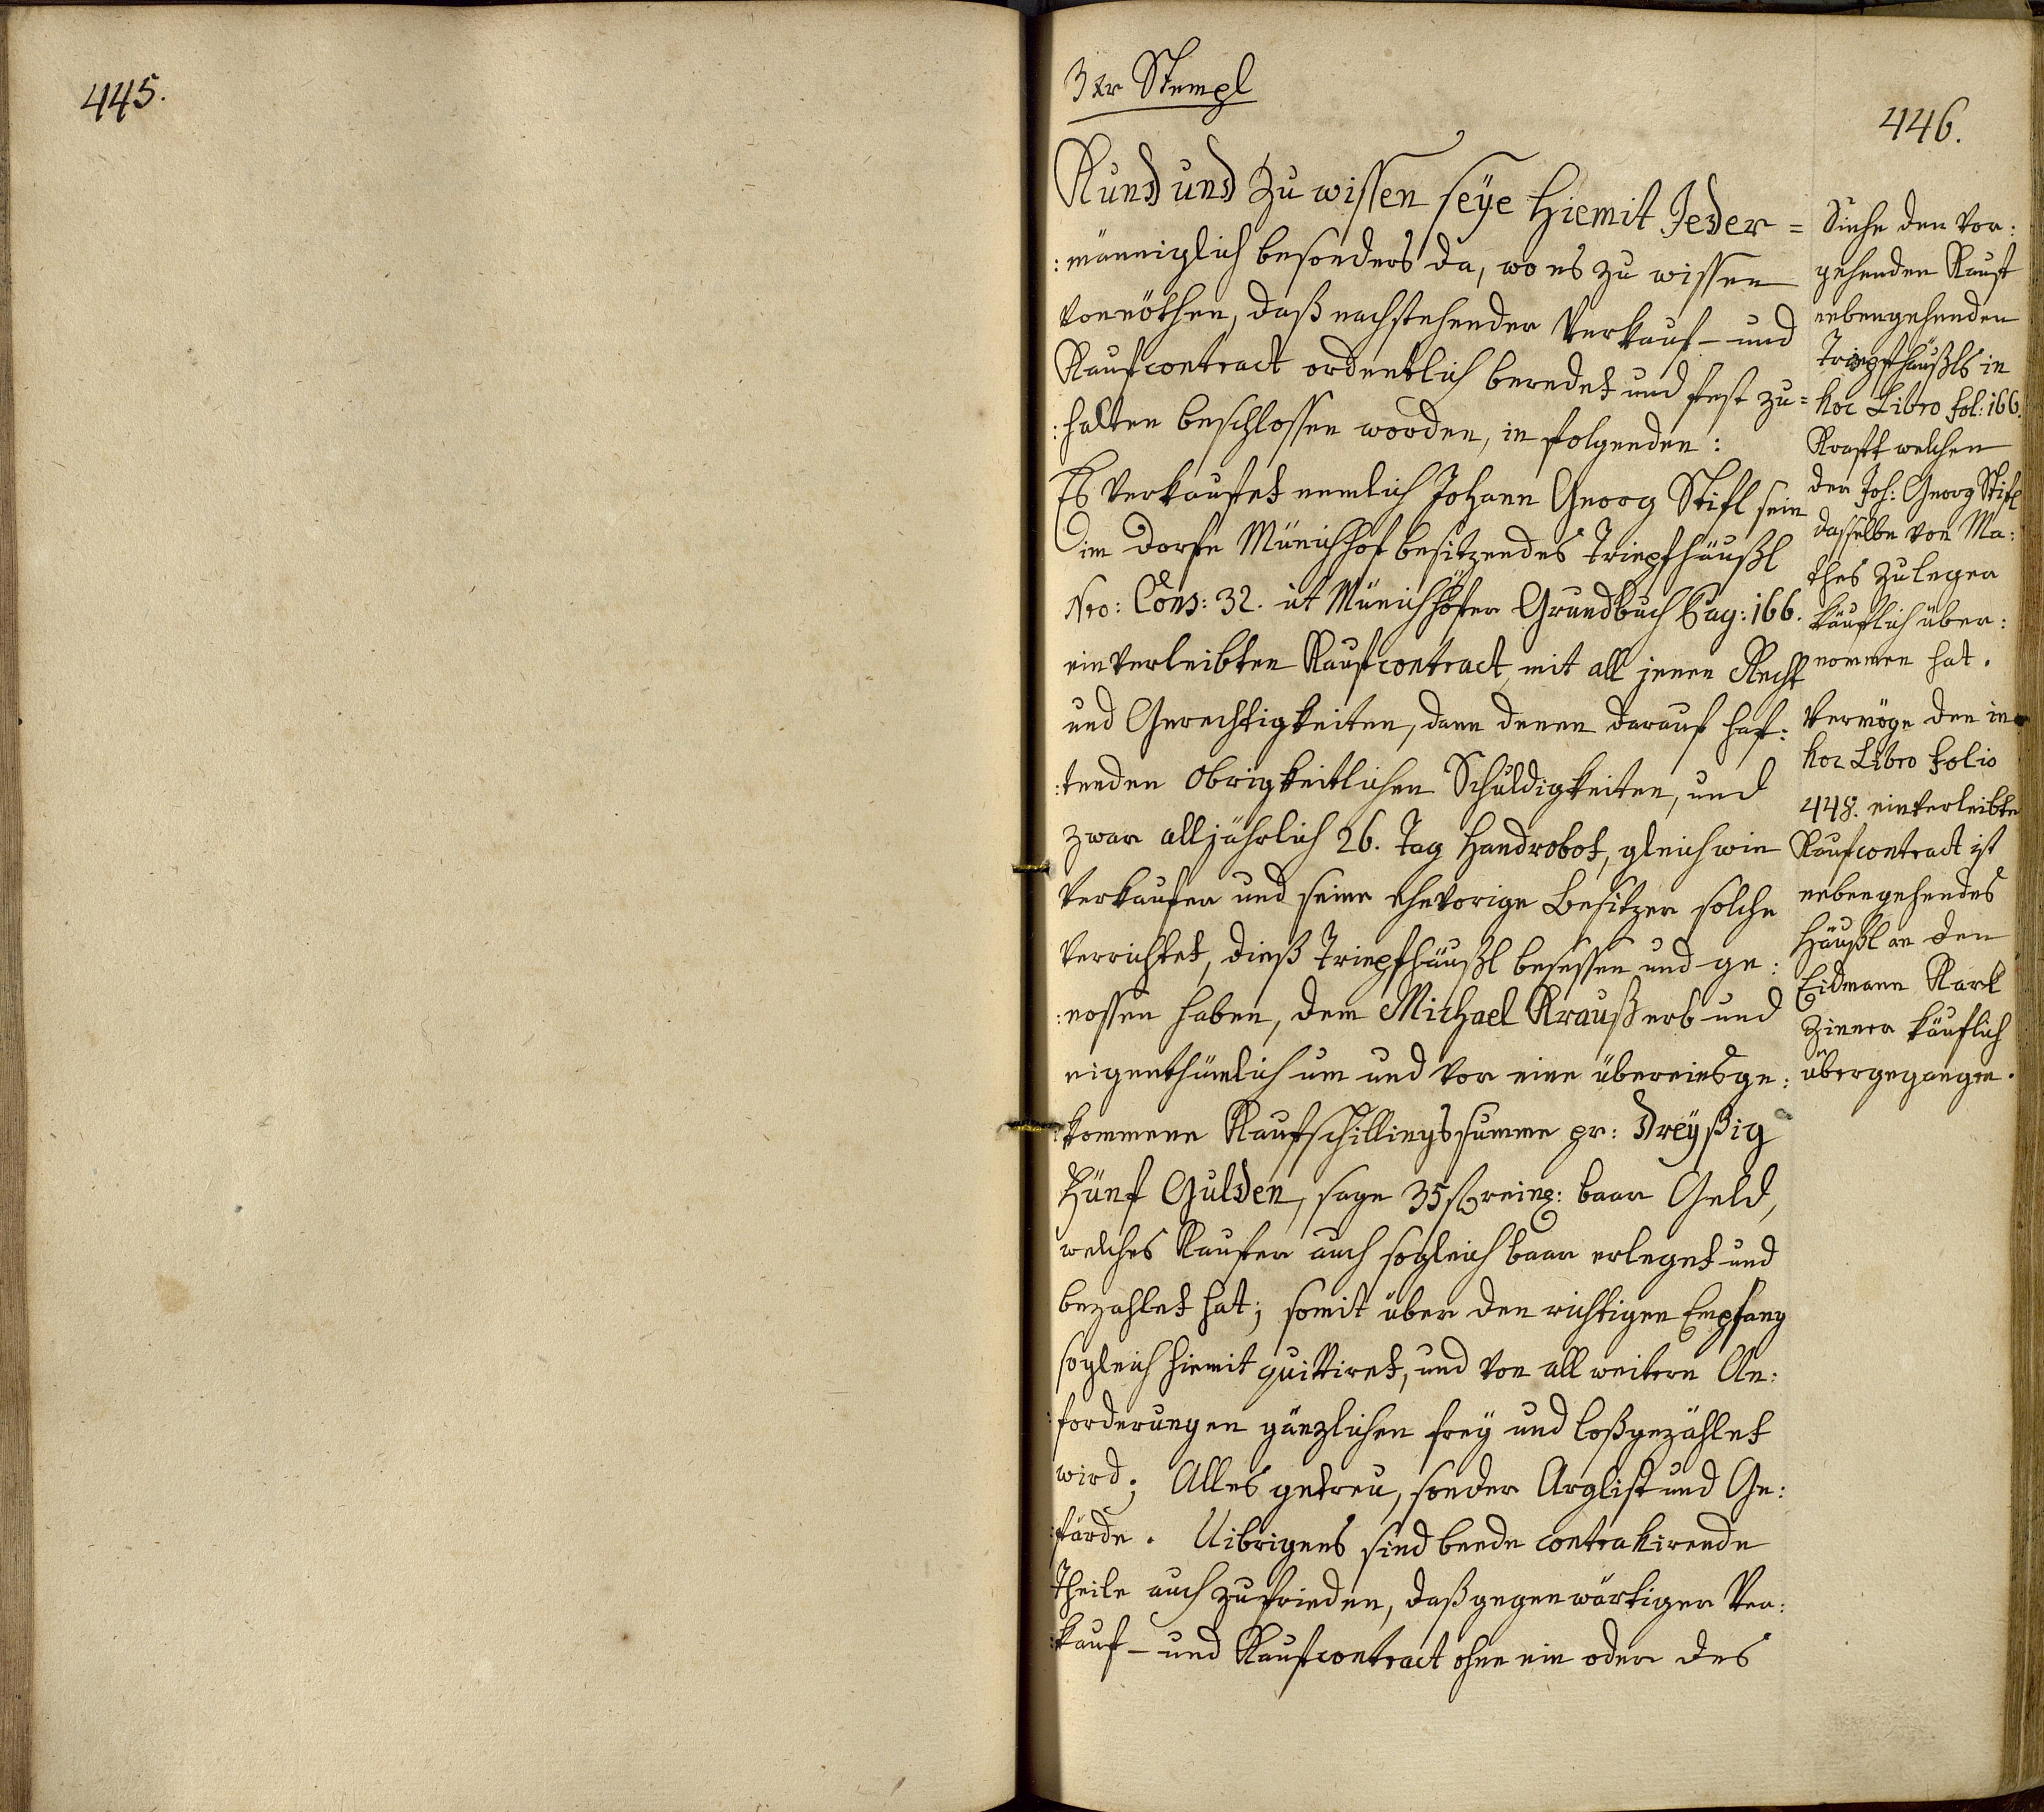 445.
3 xr Stempl
446.
Kund und zu wissen seÿe Hiemit Jeder=
:männiglich besonders da, wo es zu wissen
vonnöthen, daß nachstehender Verkauf- und
Kaufcontract ordentlich beredet und fest zu=
:halten beschlossen worden, in folgenden:
Es verkaufet nemlich Johann Georg Stifl sein
im Dorfe Münichhof besitzendes Tripfhäußl
Nro: Cons: 32. ut Münichhöfer Grundbuch Pag: 166.
einverleibten Kaufcontract, mit all jenen Recht
und Gerechtigkeiten, dann denen darauf haf:
:tenden obrigkeitlichen Schuldigkeiten, und
zwar alljährlich 26. Tag Handrobot, gleichwie
Verkaufer und seine ehevorige Besitzer solche
verrichtet, dieß Tripfhäußl besessen und ge:
:nossen haben, dem Michael Krauß erb und
eigenthümlich um und vor eine übereinsge:
:kommene Kaufschillingssumme pr: Dreÿßig
Fünf Gulden, sage 35 f reinl: baar Geld,
welches Kaufer auch sogleich baar erleget und
bezahlet hat; somit über den richtigen Empfang
sogleich hiemit quittiret, und von all weitern An:
:forderungen gänzlichen freÿ und loßgezählet
wird; Alles getreu, sonder Arglist und Ge:
:färde. Uibrigens sind beede contrahirende
Theile auch zufrieden, daß gegenwärtiger Ver:
:kauf- und Kaufcontract ohne ein oder des
Siehe den vor:
gehenden Kauf
nebengehenden
Tripfhäußls in
hoc Libro fol: 166.
Kraft welchen
der Joh: Georg Stifl
dasselbe von Ma:
thes Zuleger
käuflich über:
nommen hat.
Vermöge den in
hoc Libro folio
448. einverleibte
Kaufcontract ist
nebengehendes
Häußl an den
Eidmann Karl
Zinner käuflich
übergegangen.